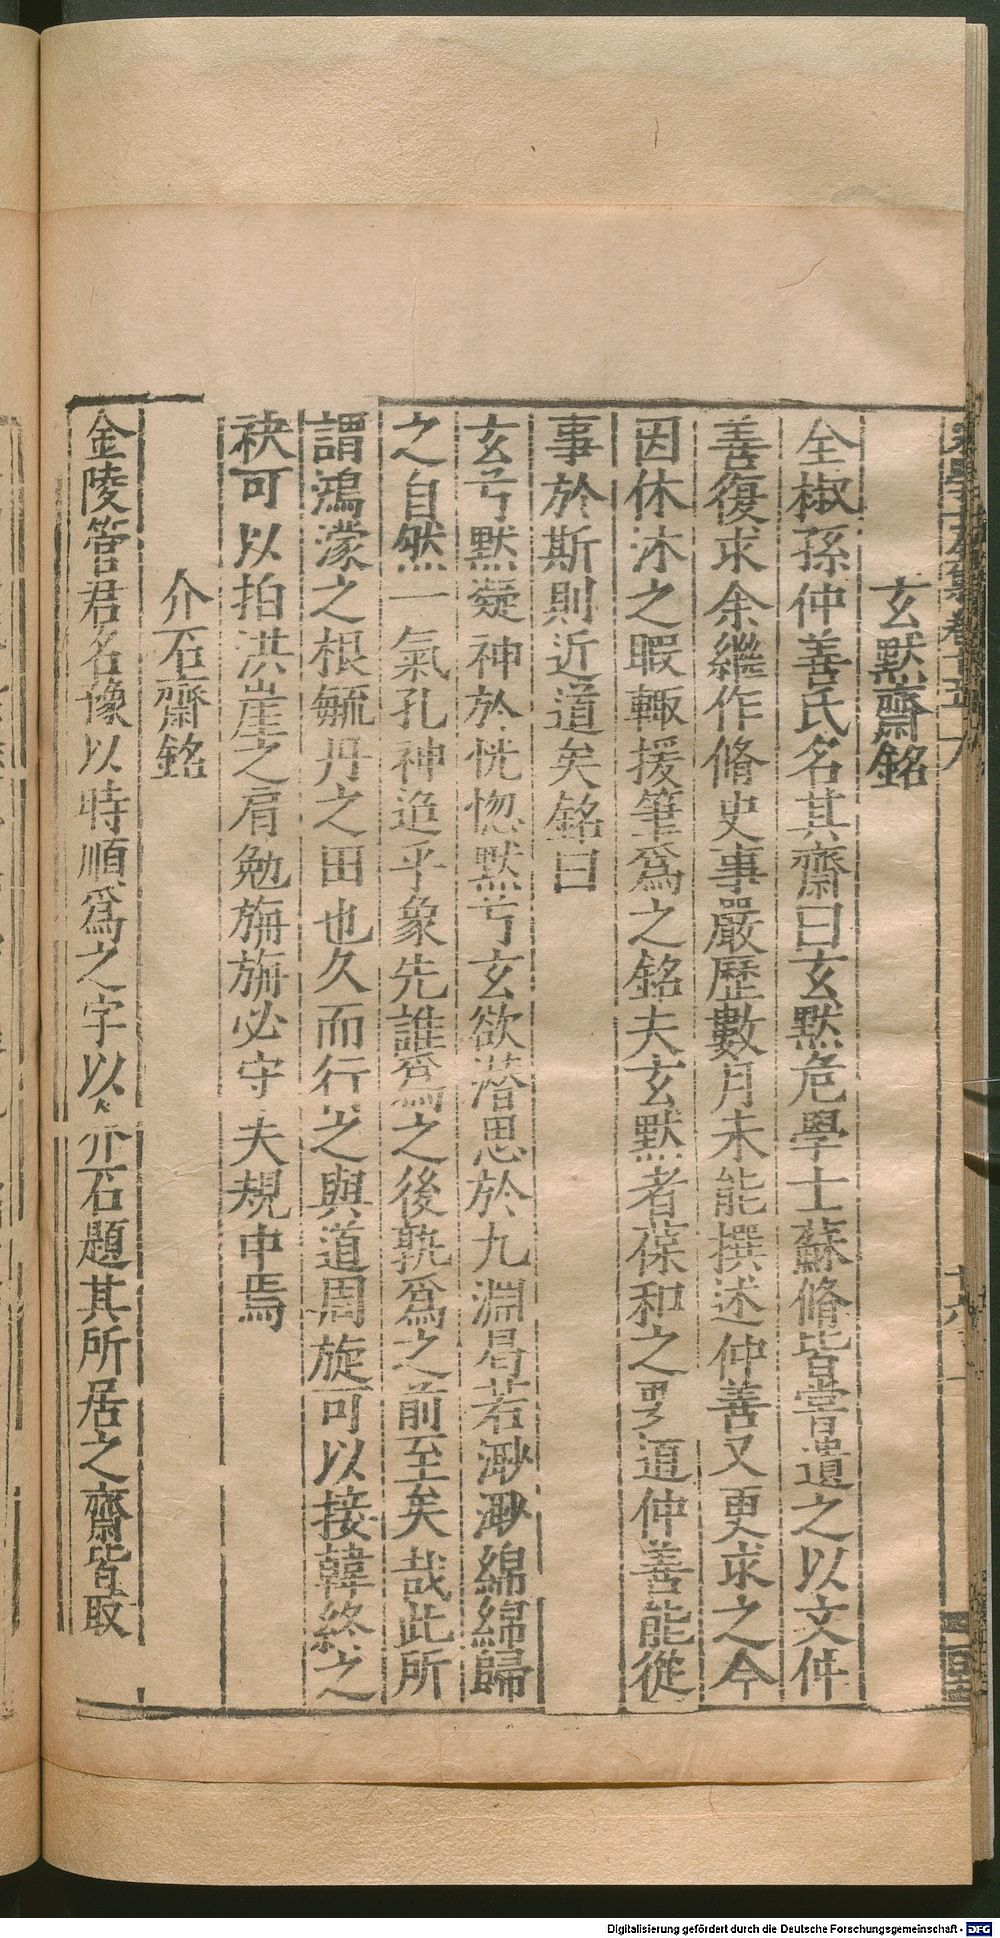 宋學士文集卷十五
玄默齋銘
全椒孫仲善氏名其齋曰玄默危學士蘇脩皆嘗遺之以文仲
善復求余繼作脩史事嚴歷數月未能撰述仲善又更求之今
因休沐之暇輙援筆爲之銘夫玄默者葆和之要道仲善能從
事於斯則近道矣銘曰
玄兮默凝神於恍惚默兮玄欲潜思於九淵曶若渺渺綿綿歸
之自然一氣孔神乎象先誰爲之後孰爲之前至矣哉此所
謂鴻濛之根毓丹之田也久而行之與道周旋可以接韓終之
袂可以拍洪崖之肩勉旃旃必守夫規中焉
介石齋銘
金陵管君名豫以時順爲之字以介石題其所居之齋皆取
Digitalisierung gefördert durch die Deutsche Forschungsgemeinschaft - DFG